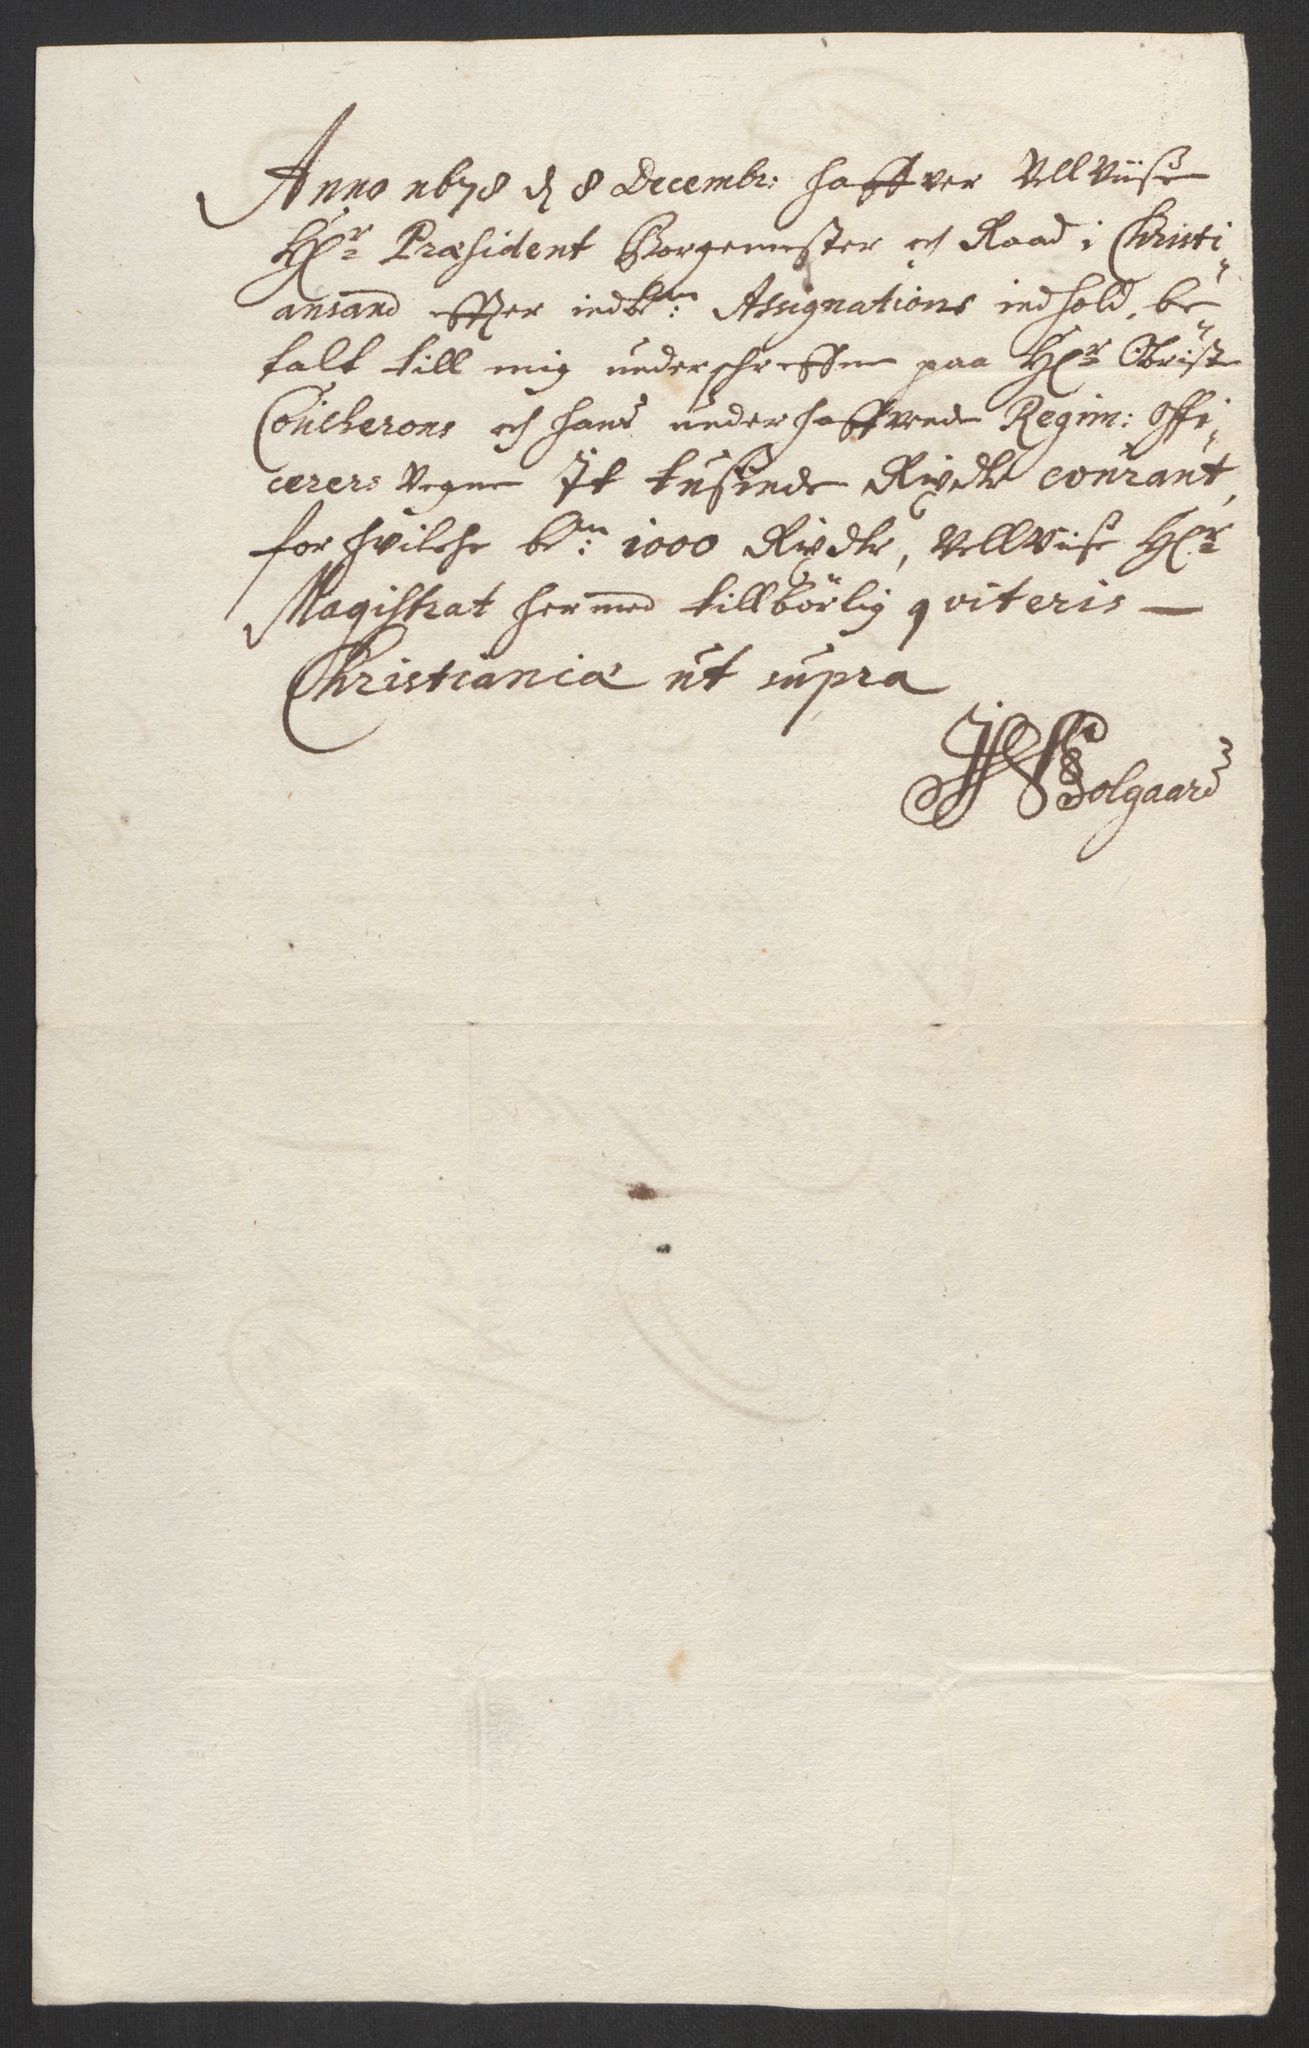 Anno 1678 d 8 Decembr: haffver Vell Viise
Hr Præsident Borgemester och Raad i Christi„
ansand effter indbm: Assignations indhold, be„
talt till mig underschreffne paa Hr Obrist
Coucherons och hans underhaffvende Regim: Offi„
cerers Vegne It tusinde Rixdlr courant,
for hvilche bm: 1000 Rixdlr, VellViise Hr
Magistrat hermed tillbörlig qviteris —
Christiania ut supra
Solgaard